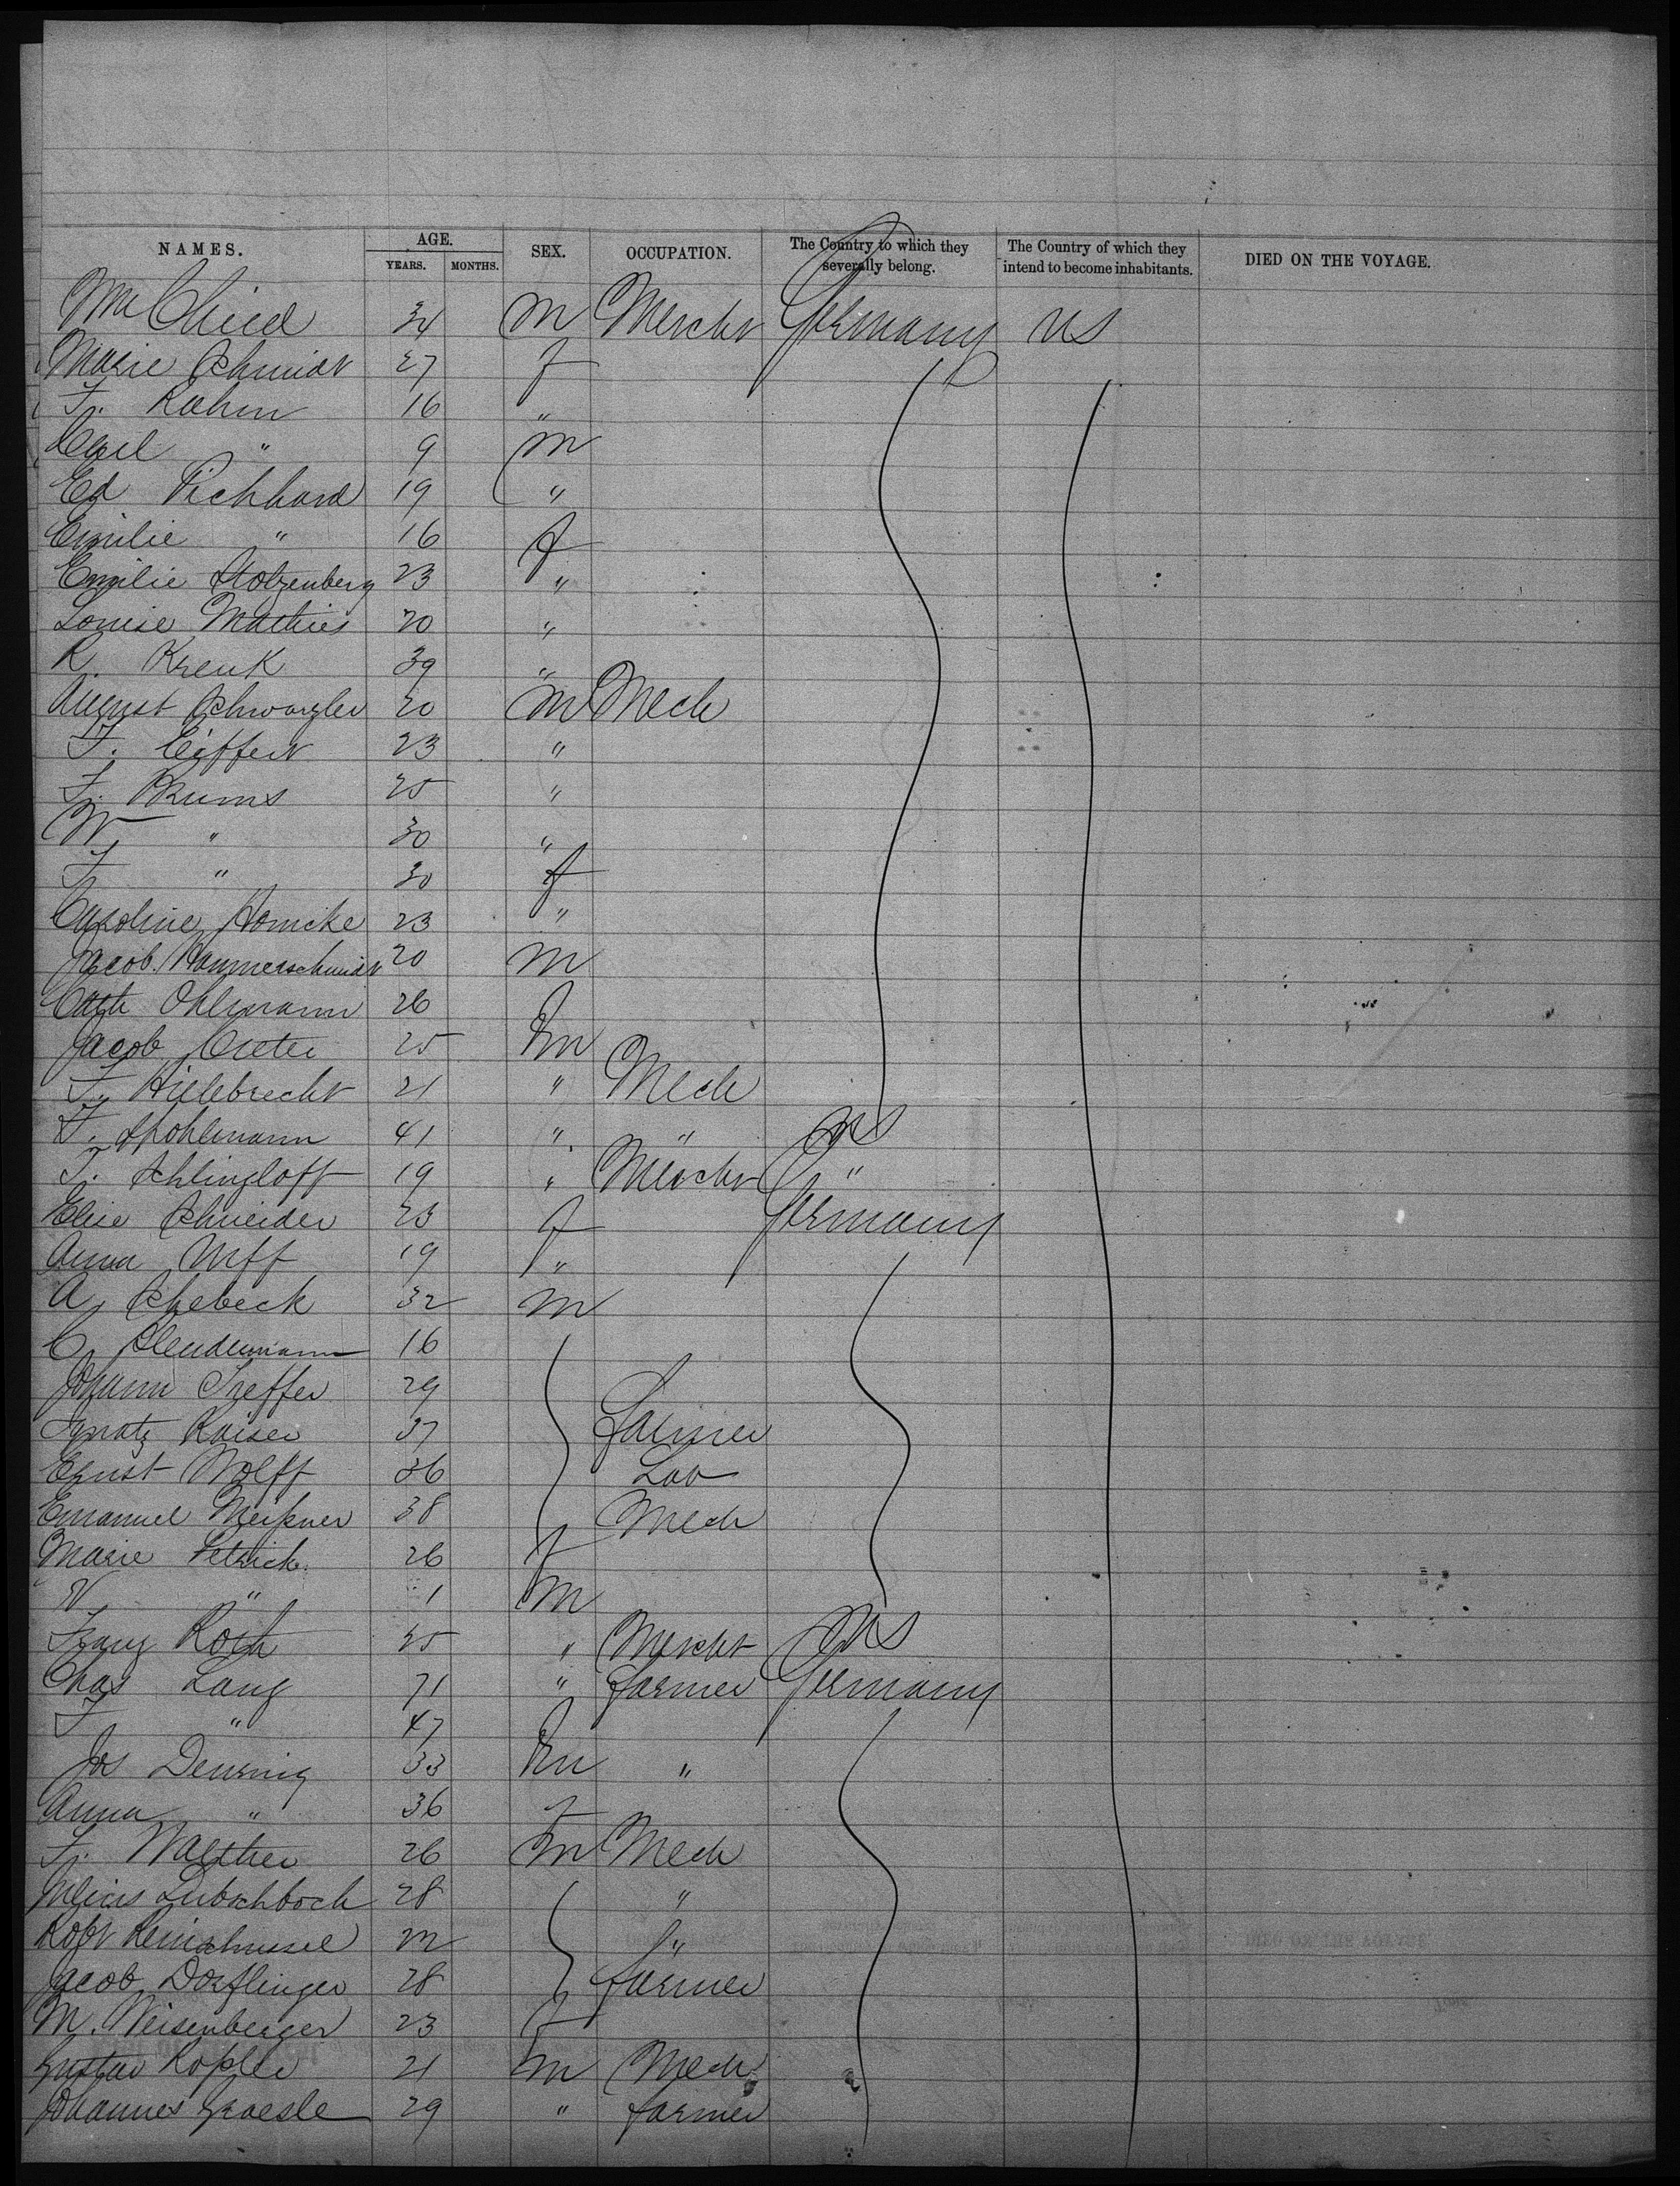 NAMES. AGE. SEX. OCCUPATION. The Country to which they severally belong. The Country of which they intend to become inhabitants. DIED ON THE VOYAGE.
YEARS. MONTHS.
Wm 34 m Mercht Germany US
Marie Schmidt 27 f
F. Rahm 16 "
Carl " 9 m
Ed Pichhard 19 "
Emilie " 16 f
Emilie Stolzenberg 23 "
Louise Mathies 20 "
R. Krenk 39 "
August Schwarzler 20 m Mech
F. Eiffert 23 "
F. Brums 25 "
W " 30 "
F " 30 f
Caroline Homcke 23 "
Jacob Hammerschmidt 20 m
Cath Ohlmann 26 f
Jacob 25 m
F. Hillebrecht 21 " Mech
F. Spohlmann 41 " " US
F. Schlingloff 19 " Mercht "
Elise Schneider 23 f Germany
Anna Neff 19 "
A. Schebeck 32 m
C. Blendermann 16
Johann Treffer 29
Ignatz Kaiser 37 Farmer
Ernst Wolff 36 Lab
Emanuel Meißner 38 Mech
Marie Petrich 26 f
W " 1 m
Franz Roth 25 " Mercht US
Chas Lang 71 " farmer Germany
F " 47 f
Jos Deurnig 33 m "
Anna " 36 f
F. Walther 26 m Mech
Julius Lubschboch 28 "
Robt 22 "
Jacob Dorflinger 28 farmer
M. Weisenberger 23 f
Gustav Kopler 21 m Mech
Johannes Graesle 29 " farmer